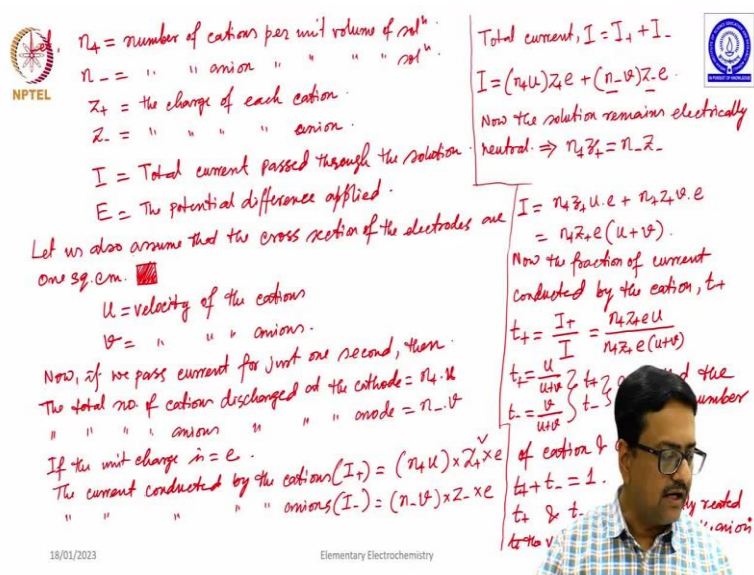 NPTEL
n₊ = number of cations per unit volume of solⁿ.
n₋ = " " anion " " " " solⁿ
Z₊ = the charge of each cation.
Z₋ = " " " " anion.
I = Total current passed through the solution.
E = The potential difference applied.
Let us also assume that the cross section of the electrodes are
one sq.cm.
u = velocity of the cations
v = " " " anions.
Now, if we pass current for just one second, then.
The total no. of cations discharged at the cathode = n₊.u
" " " . anions " " " anode = n₋.v
If the unit charge is = e.
The current conducted by the cations (I₊) = (n₊u) × Z₊ × e
" " " " " anions (I₋) = (n₋v) × Z₋ × e
Total current, I = I₊ + I₋
I = (n₊u)Z₊e + (n₋v)Z₋e.
Now the solution remains electrically
neutral. ⇒ n₊z₊ = n₋z₋
I = n₊z₊u.e + n₊z₊v.e
= n₊z₊e(u+v).
Now the fraction of current
conducted by the cation, t₊
t₊ = I₊/I = n₊z₊eu / n₊z₊e(u+v)
t₊ = u/u+v } t₊ the
t₋ = v/u+v } t₋ number
of cation &
t₊ + t₋ = 1.
t₊ & t₋
anion
18/01/2023
Elementary Electrochemistry